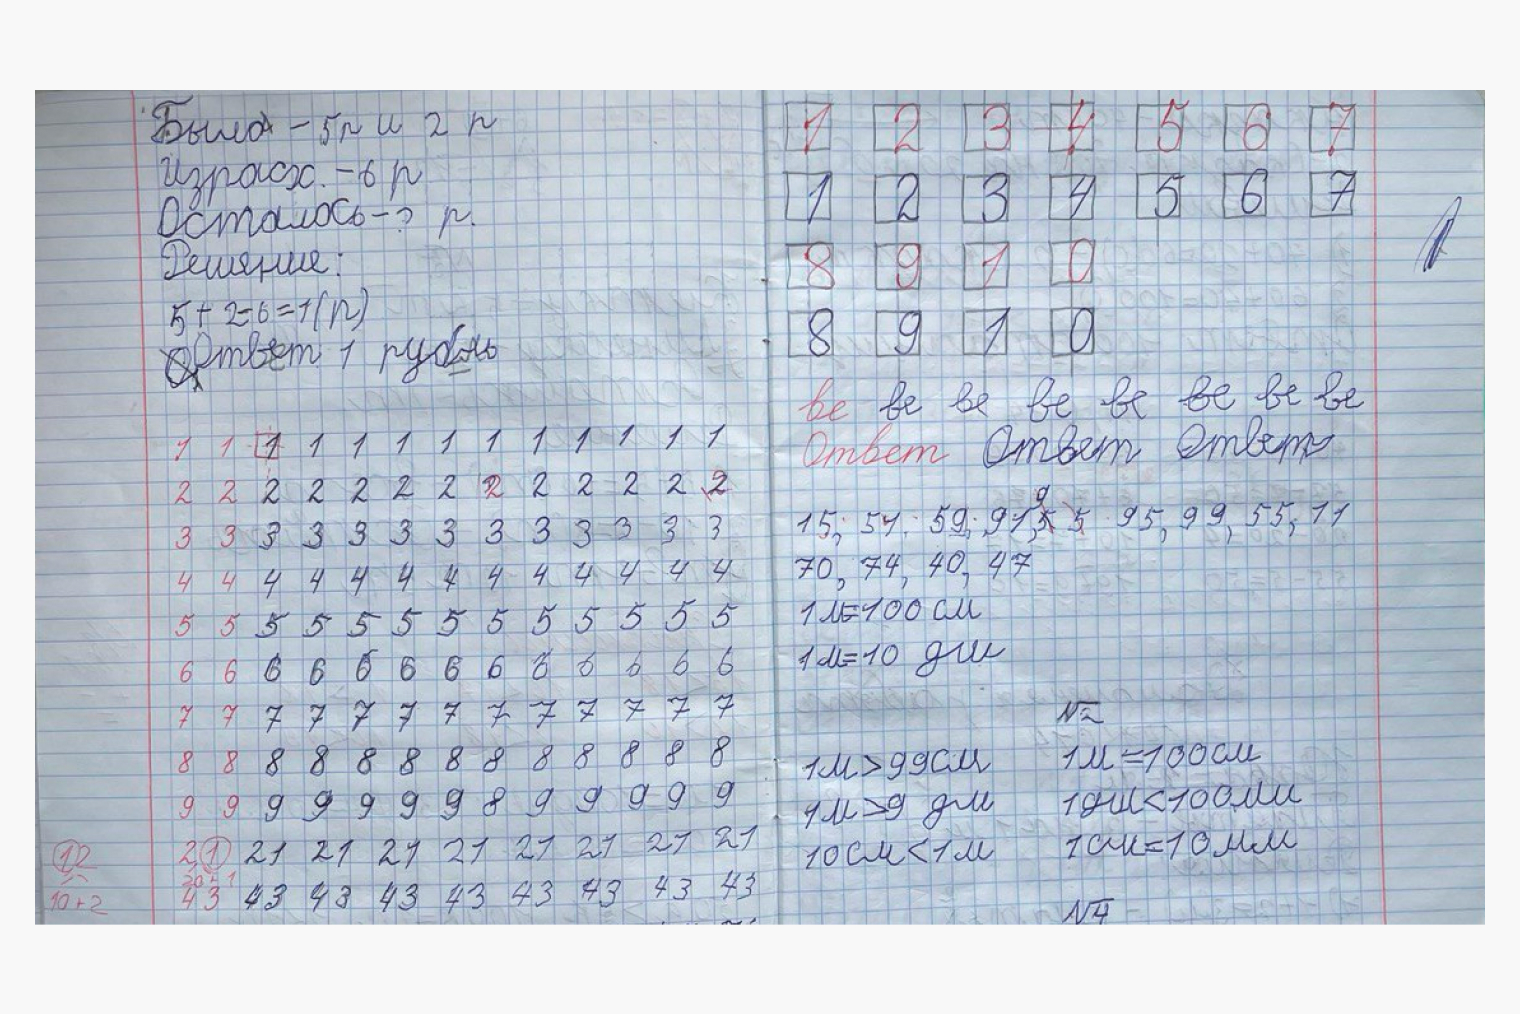 Было - 5р и 2 р
Израсх. - 6 р
Осталось - ? р.
Решение:
5 + 2 - 6 = 1 (р)
Ответ 1 рубль
1 1 1 1 1 1 1 1 1 1 1 1 1
2 2 2 2 2 2 2 2 2 2 2 2 2
3 3 3 3 3 3 3 3 3 3 3 3 3
4 4 4 4 4 4 4 4 4 4 4 4 4
5 5 5 5 5 5 5 5 5 5 5 5 5
6 6 6 6 6 6 6 6 6 6 6 6 6
7 7 7 7 7 7 7 7 7 7 7 7 7
8 8 8 8 8 8 8 8 8 8 8 8 8
9 9 9 9 9 9 9 8 9 9 9 9 9
12 21 21 21 21 21 21 21 21 21
20+1
10+2 43 43 43 43 43 43 43 43 43
1 2 3 4 5 6 7
1 2 3 4 5 6 7
8 9 1 0
8 9 1 0
ве ве ве ве ве ве ве ве
Ответ Ответ Ответ
9
15; 51; 59; 91, 5 5 95, 99, 55, 11
70, 74, 40, 47
1м=100 см
1м=10 дм
№2
1м>99см 1м=100см
1м>9 дм 1дм<100мм
10см<1м 1см=10мм
№4